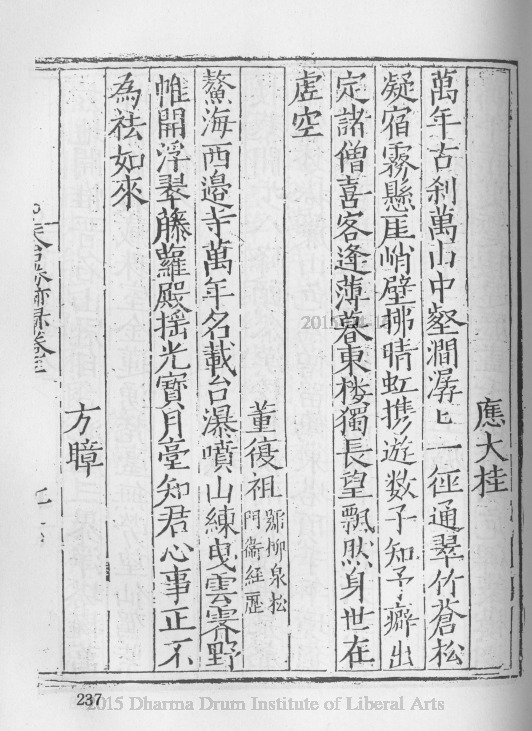 應大桂
萬年古刹萬山中壑澗潺匕一徑通翠竹蒼松
凝宿霧懸崖峭壁拂晴虹携遊数子知予癖出
定諸僧喜客逢薄暮東楼獨長望飄然身世在
虚空
董復祖號柳泉松門衞經歷
鰲海西邊寺萬年名載台瀑噴山練曳雲霽野
帷開浮翠藤蘿殿揺光寶月臺知君心事正不
為祛如來
方暲
237
2015 Dharma Drum Institute of Liberal Arts